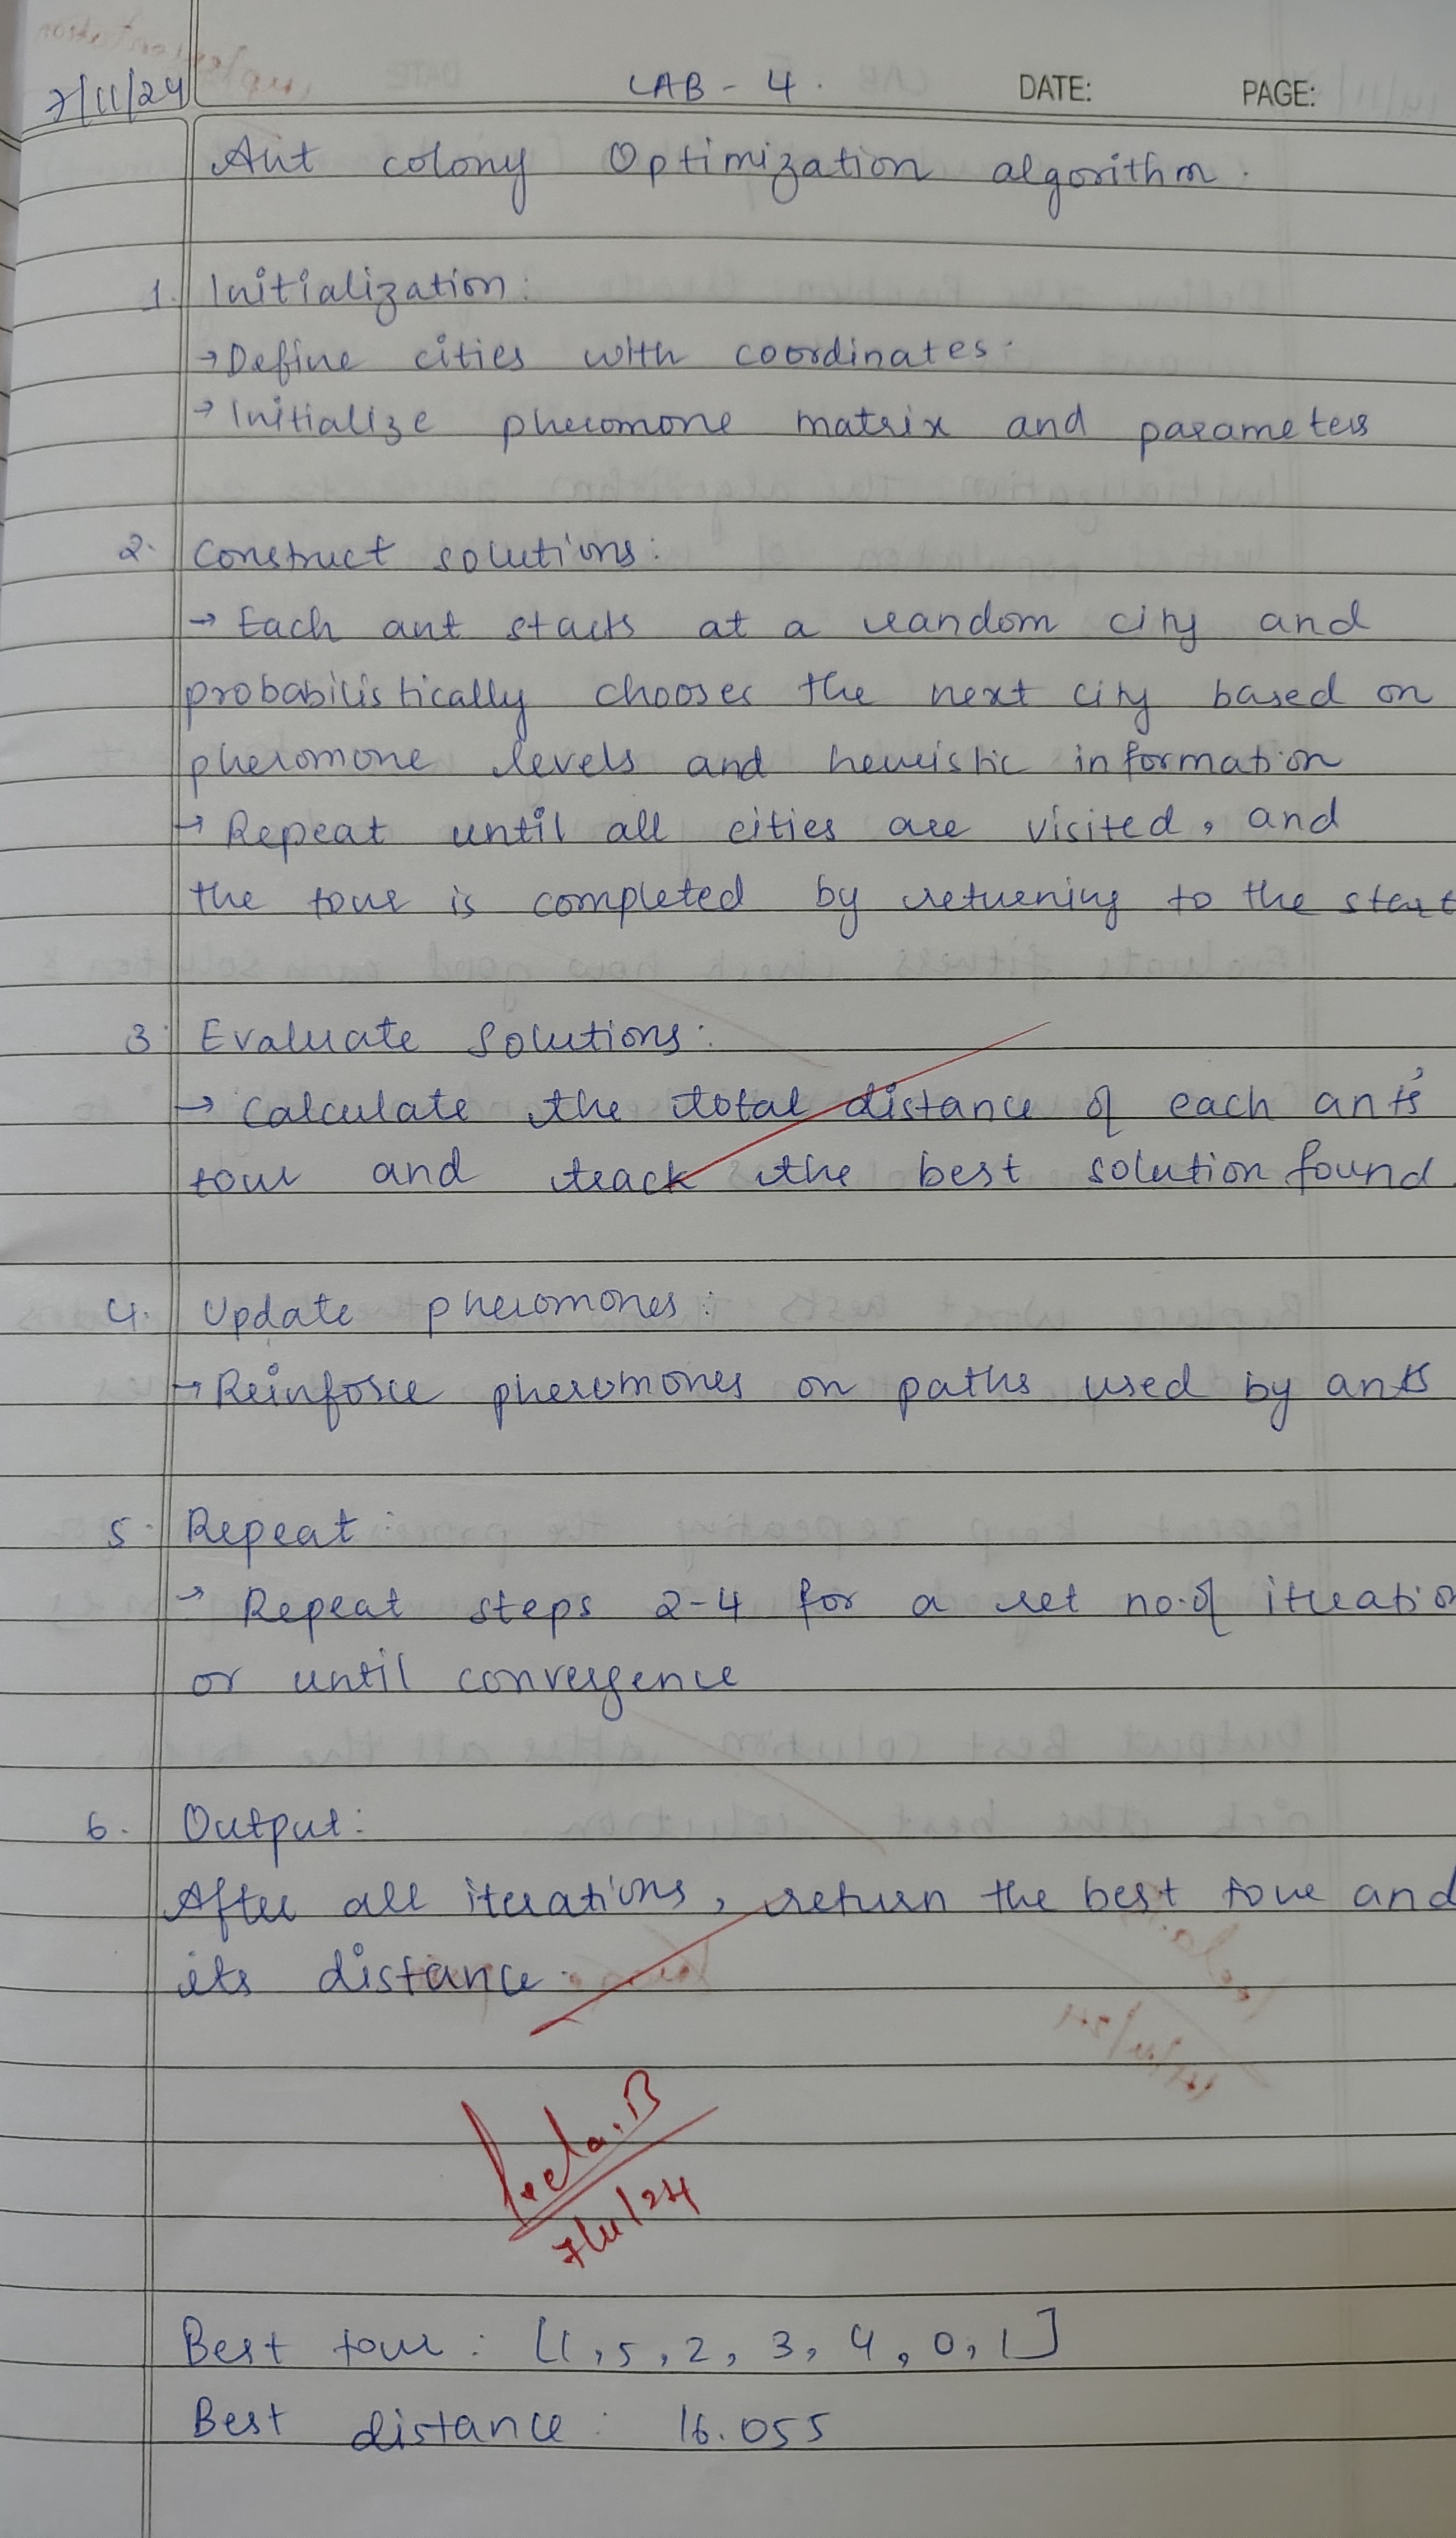 7/11/24
LAB - 4.
DATE:
PAGE:
Ant colony Optimization algorithm.
1. Initialization:
→ Define cities with coordinates.
→ Initialize pheromone matrix and parameters
2. Construct solutions:
→ Each ant starts at a random city and
probabilistically chooses the next city based on
pheromone levels and heuristic information
→ Repeat until all cities are visited, and
the tour is completed by returning to the start
3. Evaluate solutions:
→ Calculate the total distance of each ant's
tour and track the best solution found.
4. Update pheromones:
→ Reinforce pheromones on paths used by ants
5. Repeat:
→ Repeat steps 2-4 for a set no. of iteration
or until convergence
6. Output:
After all iterations, return the best tour and
its distance.
7/11/24
Best tour: [1, 5, 2, 3, 4, 0, 1]
Best distance: 16.055